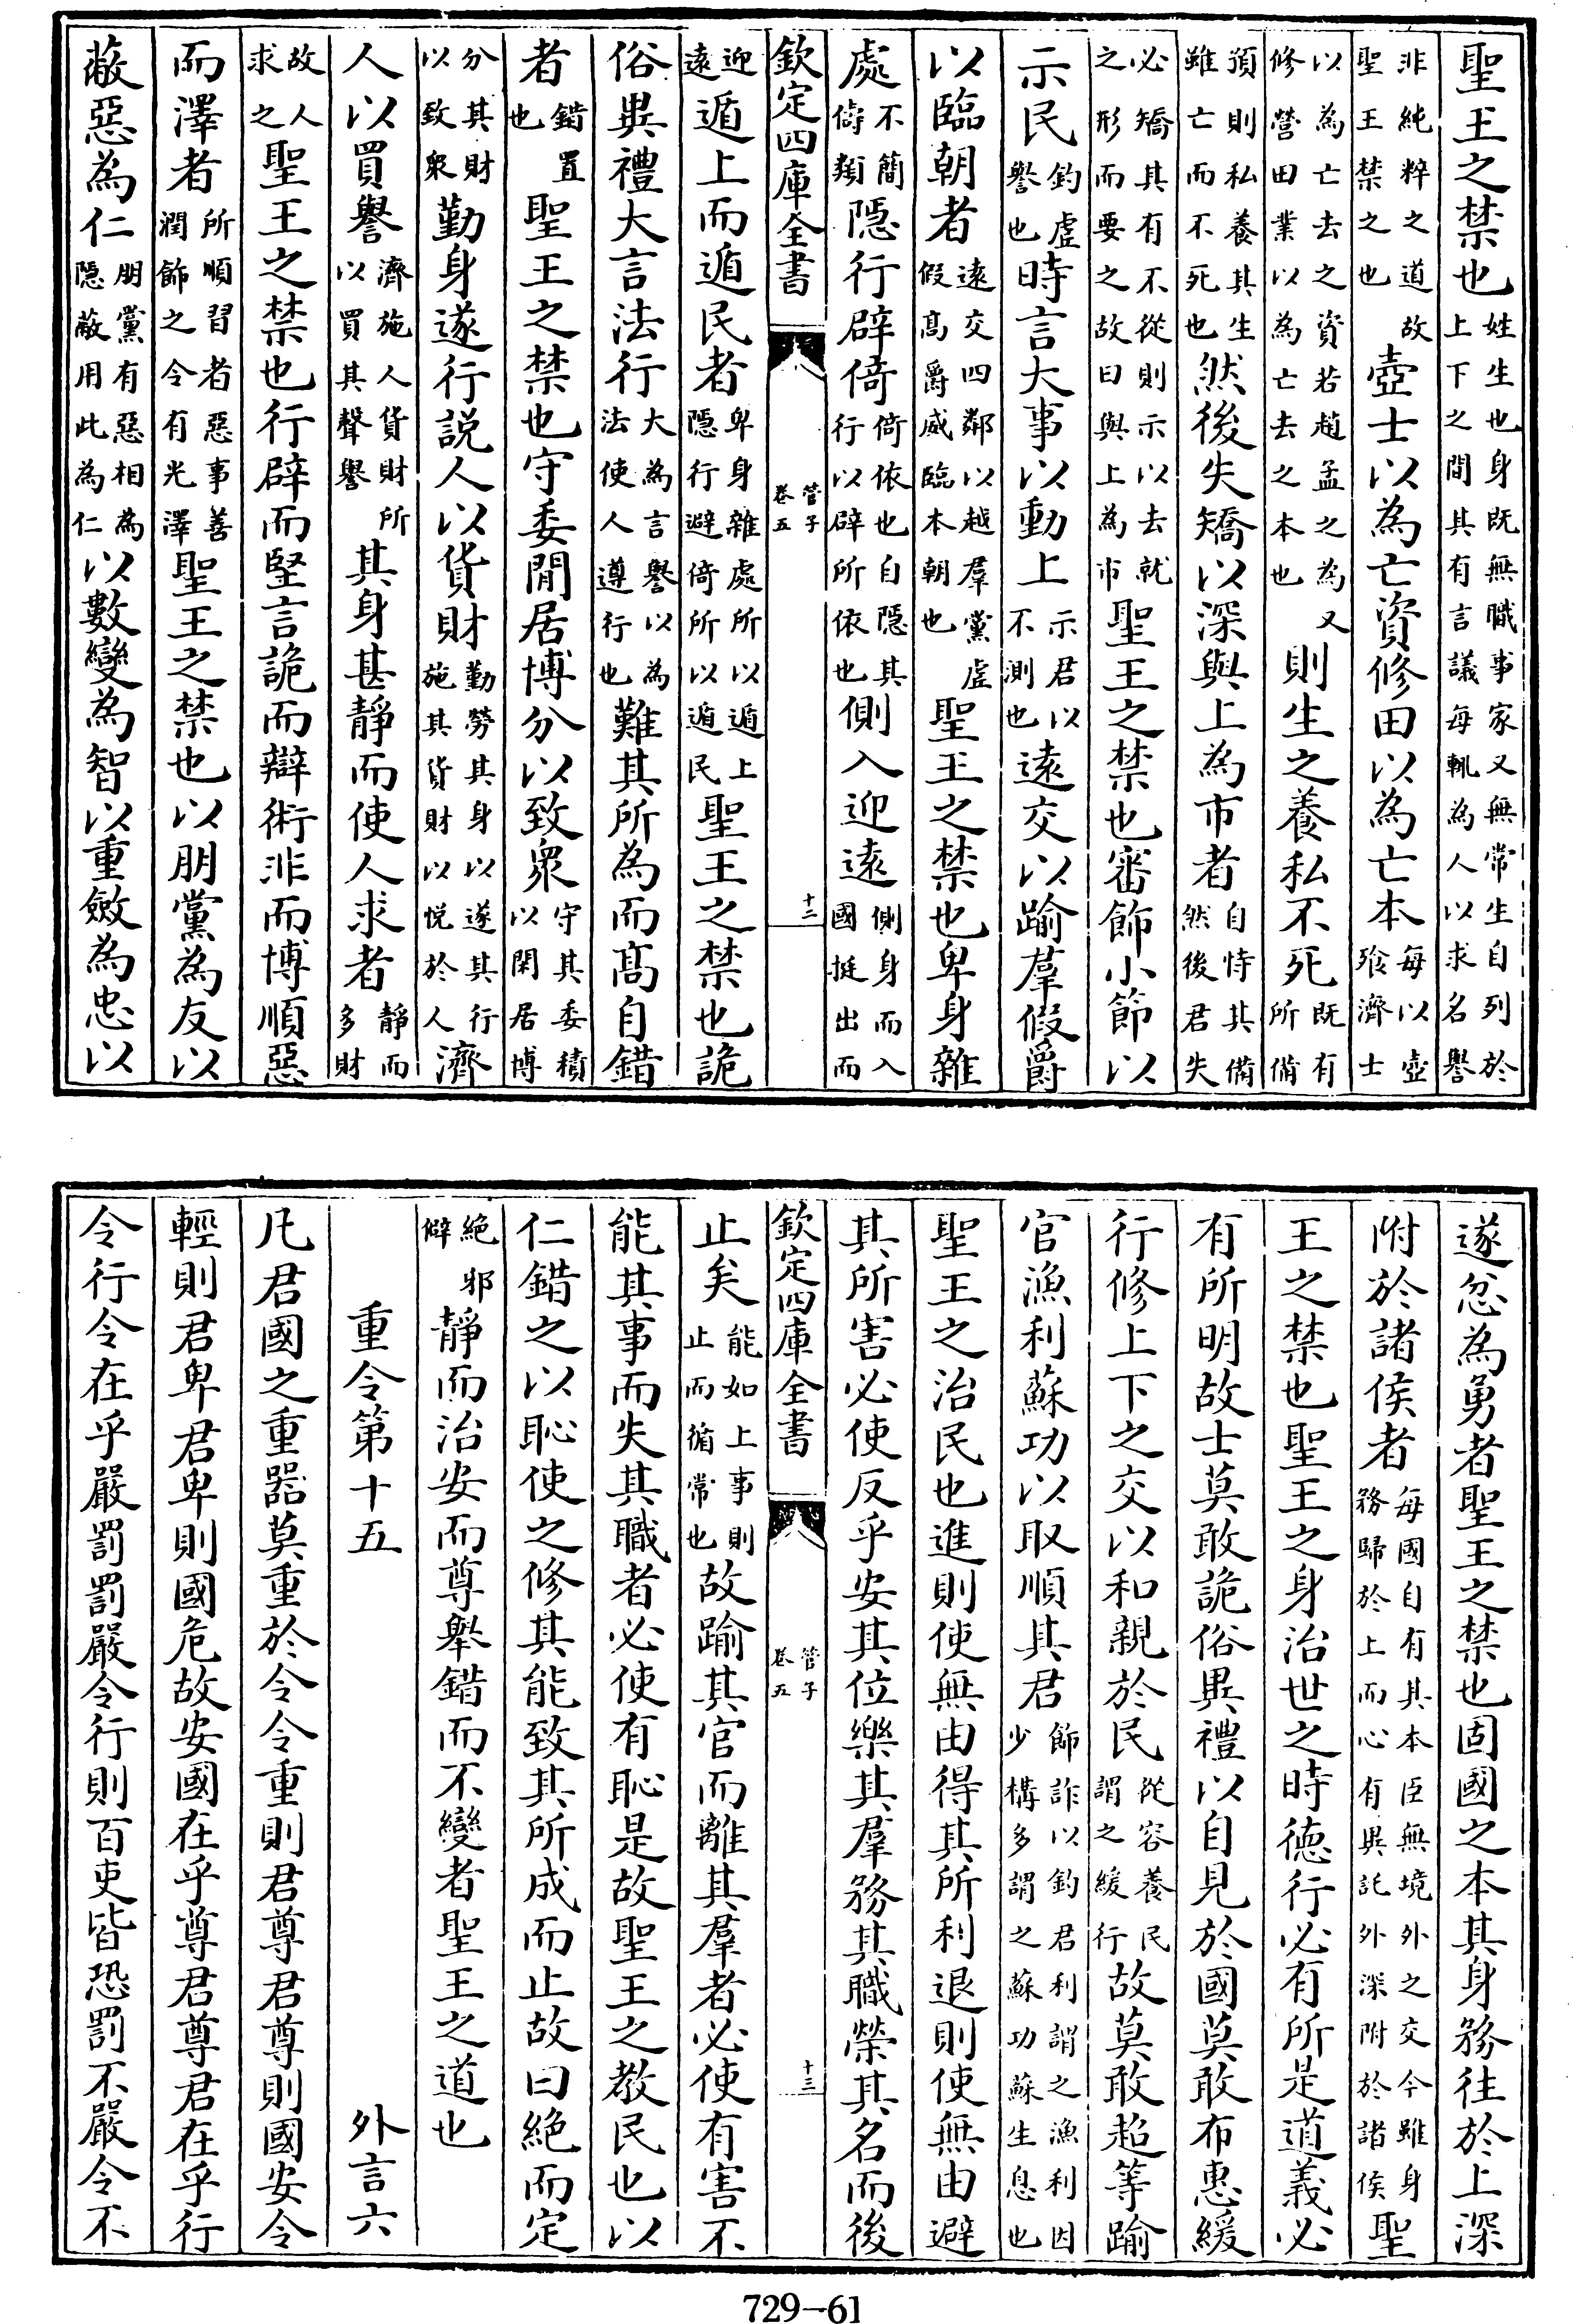 聖王之禁也姓生也身既無職事家又無常生自列於上下之間其有言議每輒為人以求名譽
非純粹之道故聖王禁之也壺士以為亡資修田以為亡本每以壺飱濟士
以為亡去之資若趙孟之為又修營田業以為亡去之本也則生之養私不死既有所備
預則私養其生雖亡而不死也然後失矯以深與上為市者自恃其備然後君失
必矯其有不從則示以去就之形而要之故曰與上為市聖王之禁也審飾小節以
示民釣虛譽也時言大事以動上示君以不測也逺交以踰羣假爵
以臨朝者逺交四鄰以越羣黨虛假髙爵威臨本朝也聖王之禁也卑身雜
處不簡儔類隱行辟倚倚依也自隱其行以辟所依也側入迎逺側身而入國挺出而
欽定四庫全書 管子卷五 十二
迎逺遁上而遁民者卑身雜處所以遁上隱行避倚所以遁民聖王之禁也詭
俗異禮大言法行大為言譽以為法使人遵行也難其所為而髙自錯
者錯置也聖王之禁也守委閒居博分以致衆守其委積以閑居博
分其財以致衆勤身遂行説人以貨財勤勞其身以遂其行施其貨財以悅於人濟
人以買譽濟施人貨財所以買其聲譽其身甚靜而使人求者靜而多財
故人求之聖王之禁也行辟而堅言詭而辯術非而博順惡
而澤者所順習者惡事善潤飾之令有光澤聖王之禁也以朋黨為友以
蔽惡為仁朋黨有惡相為隱蔽用此為仁以數變為智以重斂為忠以
遂忿為勇者聖王之禁也固國之本其身務往於上深
附於諸侯者每國自有其本臣無境外之交今雖身務歸於上而心有異託外深附於諸侯聖
王之禁也聖王之身治世之時徳行必有所是道義必
有所明故士莫敢詭俗異禮以自見於國莫敢布惠緩
行修上下之交以和親於民從容養民謂之緩行故莫敢超等踰
官漁利蘇功以取順其君飾詐以釣君利謂之漁利因少構多謂之蘇功蘇生息也
聖王之治民也進則使無由得其所利退則使無由避
其所害必使反乎安其位樂其羣務其職榮其名而後
欽定四庫全書 管子卷五 十三
止矣能如上事則止而循常也故踰其官而離其羣者必使有害不
能其事而失其職者必使有恥是故聖王之教民也以
仁錯之以恥使之修其能致其所成而止故曰絶而定
絶邪僻靜而治安而尊舉錯而不變者聖王之道也
重令第十五 外言六
凡君國之重器莫重於令令重則君尊君尊則國安令
輕則君卑君卑則國危故安國在乎尊君尊君在乎行
令行令在乎嚴罰罰嚴令行則百吏皆恐罰不嚴令不
729—61